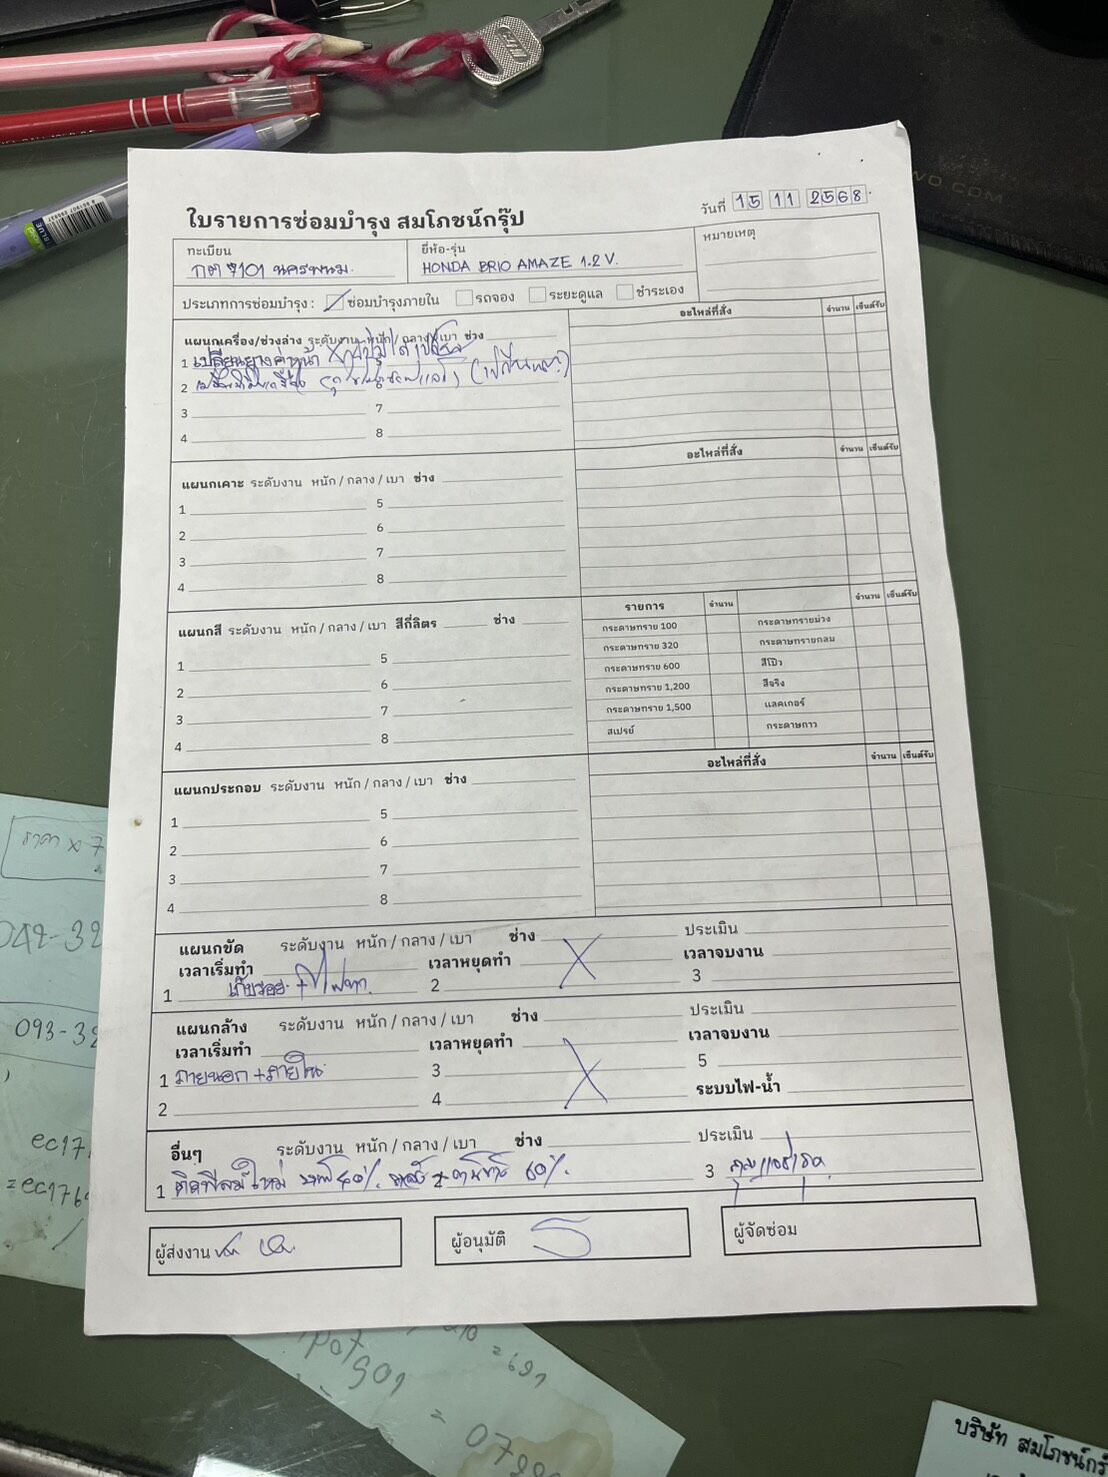 วันที่ 15 11 2568
ใบรายการซ่อมบำรุง สมโภชน์กรุ๊ป
ทะเบียน
กต 7101 นครพนม.
ยี่ห้อ-รุ่น
HONDA BRIO AMAZE 1.2 V.
หมายเหตุ
ประเภทการซ่อมบำรุง : ซ่อมบำรุงภายใน รถจอง ระยะดูแล ชำระเอง
แผนกเครื่อง/ช่วงล่าง ระดับงาน หนัก / กลาง / เบา ช่าง
อะไหล่ที่สั่ง จำนวน เซ็นต์รับ
1 เปลี่ยนยางคู่หน้า
2
3 7
4 8
แผนกเคาะ ระดับงาน หนัก / กลาง / เบา ช่าง
อะไหล่ที่สั่ง จำนวน เซ็นต์รับ
1 5
2 6
3 7
4 8
แผนกสี ระดับงาน หนัก / กลาง / เบา สีกี่ลิตร ช่าง
1 5
2 6
3 7
4 8
รายการ จำนวน จำนวน เซ็นต์รับ
กระดาษทราย 100 กระดาษทรายม่วง
กระดาษทราย 320 กระดาษทรายกลม
กระดาษทราย 600 สีโป๊ว
กระดาษทราย 1,200 สีจริง
กระดาษทราย 1,500 แลคเกอร์
สเปรย์ กระดาษกาว
แผนกประกอบ ระดับงาน หนัก / กลาง / เบา ช่าง
อะไหล่ที่สั่ง จำนวน เซ็นต์รับ
1 5
2 6
3 7
4 8
แผนกขัด ระดับงาน หนัก / กลาง / เบา ช่าง ประเมิน
เวลาเริ่มทำ เวลาหยุดทำ เวลาจบงาน
1 เก็บรอย + 2 3
แผนกล้าง ระดับงาน หนัก / กลาง / เบา ช่าง ประเมิน
เวลาเริ่มทำ เวลาหยุดทำ เวลาจบงาน
1 ภายนอก + ภายใน 3 5
2 4 ระบบไฟ-น้ำ
อื่นๆ ระดับงาน หนัก / กลาง / เบา ช่าง ประเมิน
1 ติดฟิล์มใหม่ 40% 60% 3
ผู้ส่งงาน
ผู้อนุมัติ
ผู้จัดซ่อม
ราคา x 7
042-32
093-32
ec17
=ec176
901
= 691
= 07
บริษัท สมโภชน์กรุ๊